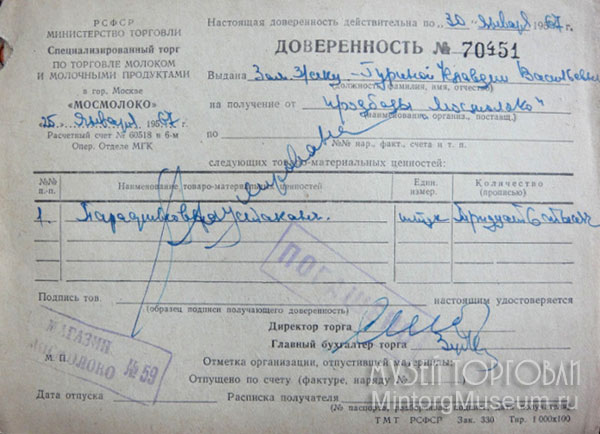 РСФСР
МИНИСТЕРСТВО ТОРГОВЛИ
Специализированный торг
ПО ТОРГОВЛЕ МОЛОКОМ
И МОЛОЧНЫМИ ПРОДУКТАМИ
в гор. Москве
«МОСМОЛОКО»
„25“ января 1967 г.
Расчетный счет № 60518 в 6-м
Опер. Отделе МГК
Настоящая доверенность действительна по „30“ января 1967 г.
ДОВЕРЕННОСТЬ № 70451
Выдана Зам. Гуриной Клавдии Васильевне
(должность, фамилия, имя, отчество)
на получение от продбазы „Мосмолоко“
(наименование организ., поставщ.)
по
(№№ нар., факт., счета и т. п.)
следующих товаро-материальных ценностей:
№№ п.-п.
Наименование товаро-материальных ценностей
Един. измер.
Количество (прописью)
1.
штук
ПОГАШЕНО
Подпись тов.
(образец подписи получающего доверенность)
настоящим удостоверяется
Директор торга
Главный бухгалтер торга
МАГАЗИН № 59
МОСМОЛОКО
М П
Отметка организации, отпустившей материалы:
Отпущено по счету (фактуре, наряду №
Дата отпуска
Расписка получателя
(№ паспорта,
ТМТ РСФСР Зак. 330 Тир. 1 000×100
МУЗЕЙ ТОРГОВЛИ
MintorgMuseum.ru